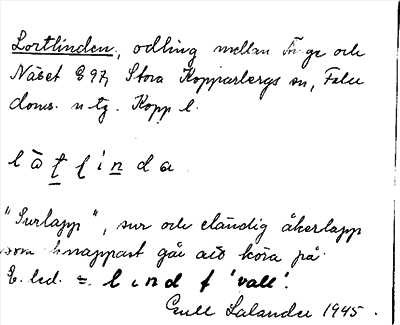 Lortlinden, odling mellan Finge och
Näset E 97, Stora Kopparbergs sn, Falu
doms. u tg. Kopp l.
l ā t l i n d a
"Surlapp", sur och eländig åkerlapp
som knappast går att köra på.
E. led. = l i n d f 'vall'.
Gull Salander 1945.